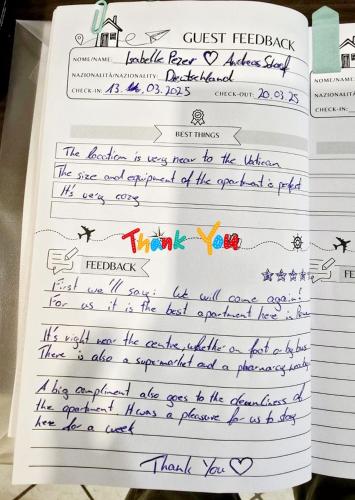 GUEST FEEDBACK
NOME/NAME: Isabelle Pezer ♡ Andreas
NAZIONALITÀ/NAZIONALITY: Deutschland
CHECK-IN: 13. .03.2025 CHECK-OUT: 20.03.25
BEST THINGS
The location is very near to the Vatican
The size and equipment of the apartment is perfect
It's very cozy
Thank You
FEEDBACK
First we'll say: We will come again!
For us it is the best apartment here in
It's right near the centre, whether on foot or by bus
There is also a supermarket and a pharmacy nearby
A big compliment also goes to the cleanliness of
the apartment. It was a pleasure for us to stay
here for a week
Thank You ♡
NOME/NAME:
NAZIONALITÀ/
CHECK-IN:
FEE